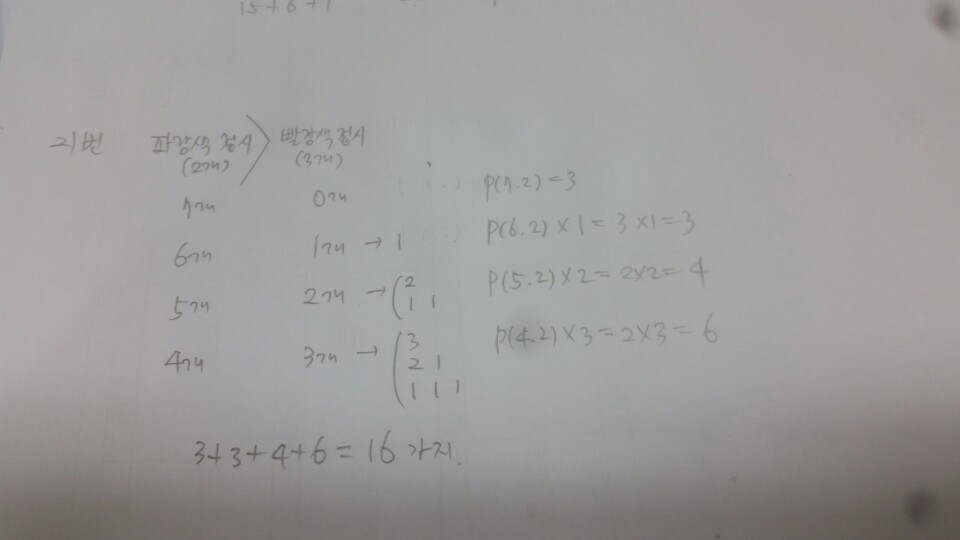 15+6+1
21번 파랑색 접시 > 빨강색 접시
(2개) (3개)
7개 0개 P(7.2)=3
6개 1개 → 1 P(6.2)×1=3×1=3
5개 2개 → ( 2 P(5.2)×2=2×2=4
1 1
4개 3개 → ( 3 P(4.2)×3=2×3=6
2 1
1 1 1
3+3+4+6=16 가지.